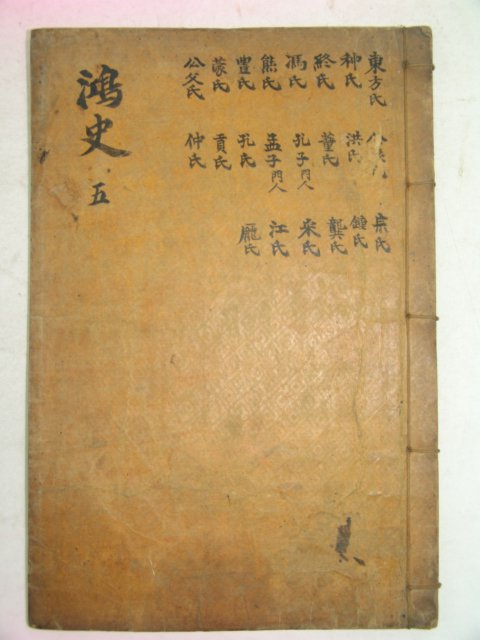 東方氏 氏 宗氏
种氏 洪氏 鍾氏
終氏 董氏 龔氏
馮氏 孔子門人 宋氏
熊氏 孟子門人 江氏
豊氏 孔氏 龐氏
蒙氏 貢氏
公父氏 仲氏
鴻史 五